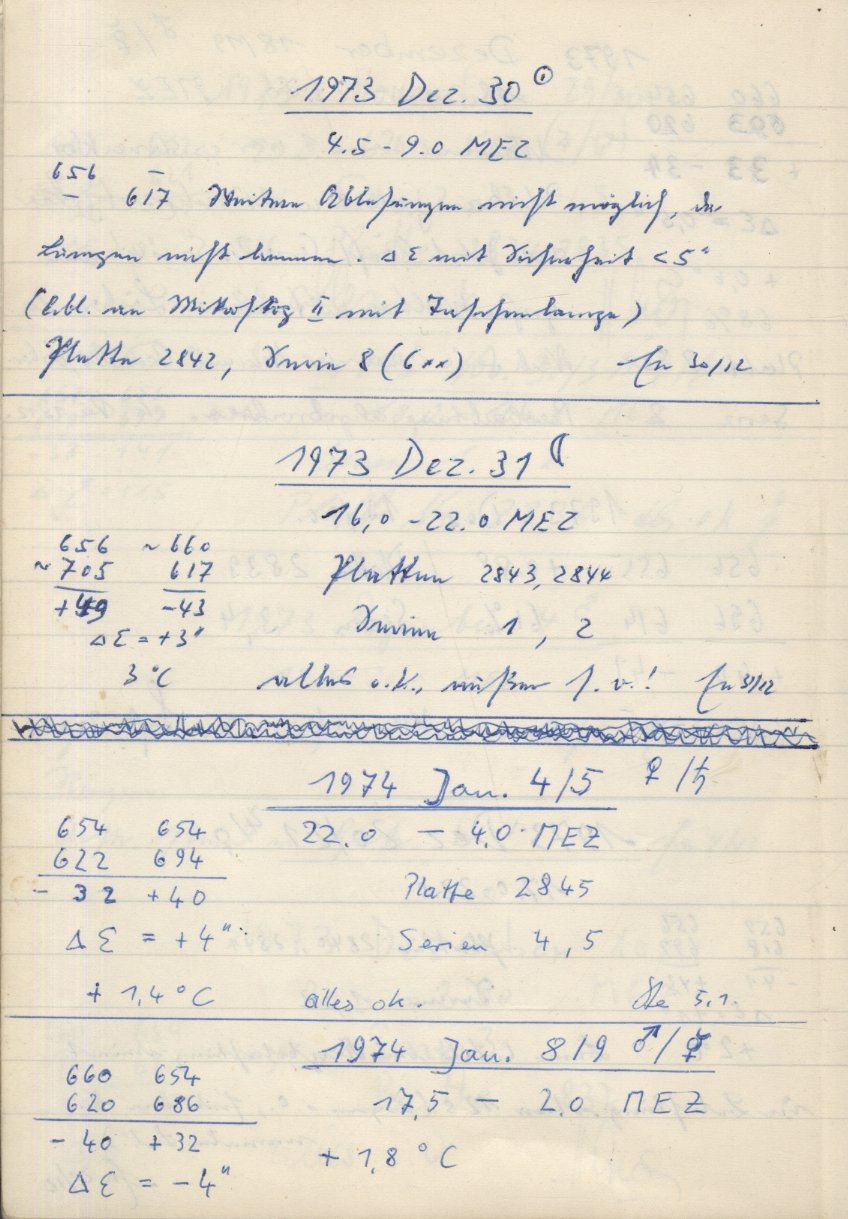 1973 Dez. 30 ☉
4.5 - 9.0 MEZ
656 —
— 617 Weitere Ablesungen nicht möglich, da
Lampen nicht brennen. Δε mit Sicherheit < 5"
(Abl. an Mikroskop II mit Taschenlampe)
Platte 2842, Serie 8 (6xx) 30/12
1973 Dez. 31 ☾
16,0 - 22.0 MEZ
656 ~660
~705 617 Platten 2843, 2844
+49 -43 Serien 1, 2
Δε = +3"
3°C alles o.k., außer 31/12
1974 Jan. 4/5 ♀/♄
654 654 22.0 — 4.0 MEZ
622 694
- 32 +40 Platte 2845
Δε = +4" Serien 4, 5
+ 1,4°C alles ok. 5.1.
1974 Jan. 8/9 ♂/☿
660 654
620 686 17,5 — 2.0 MEZ
- 40 + 32
+ 1,8 °C
Δε = -4"